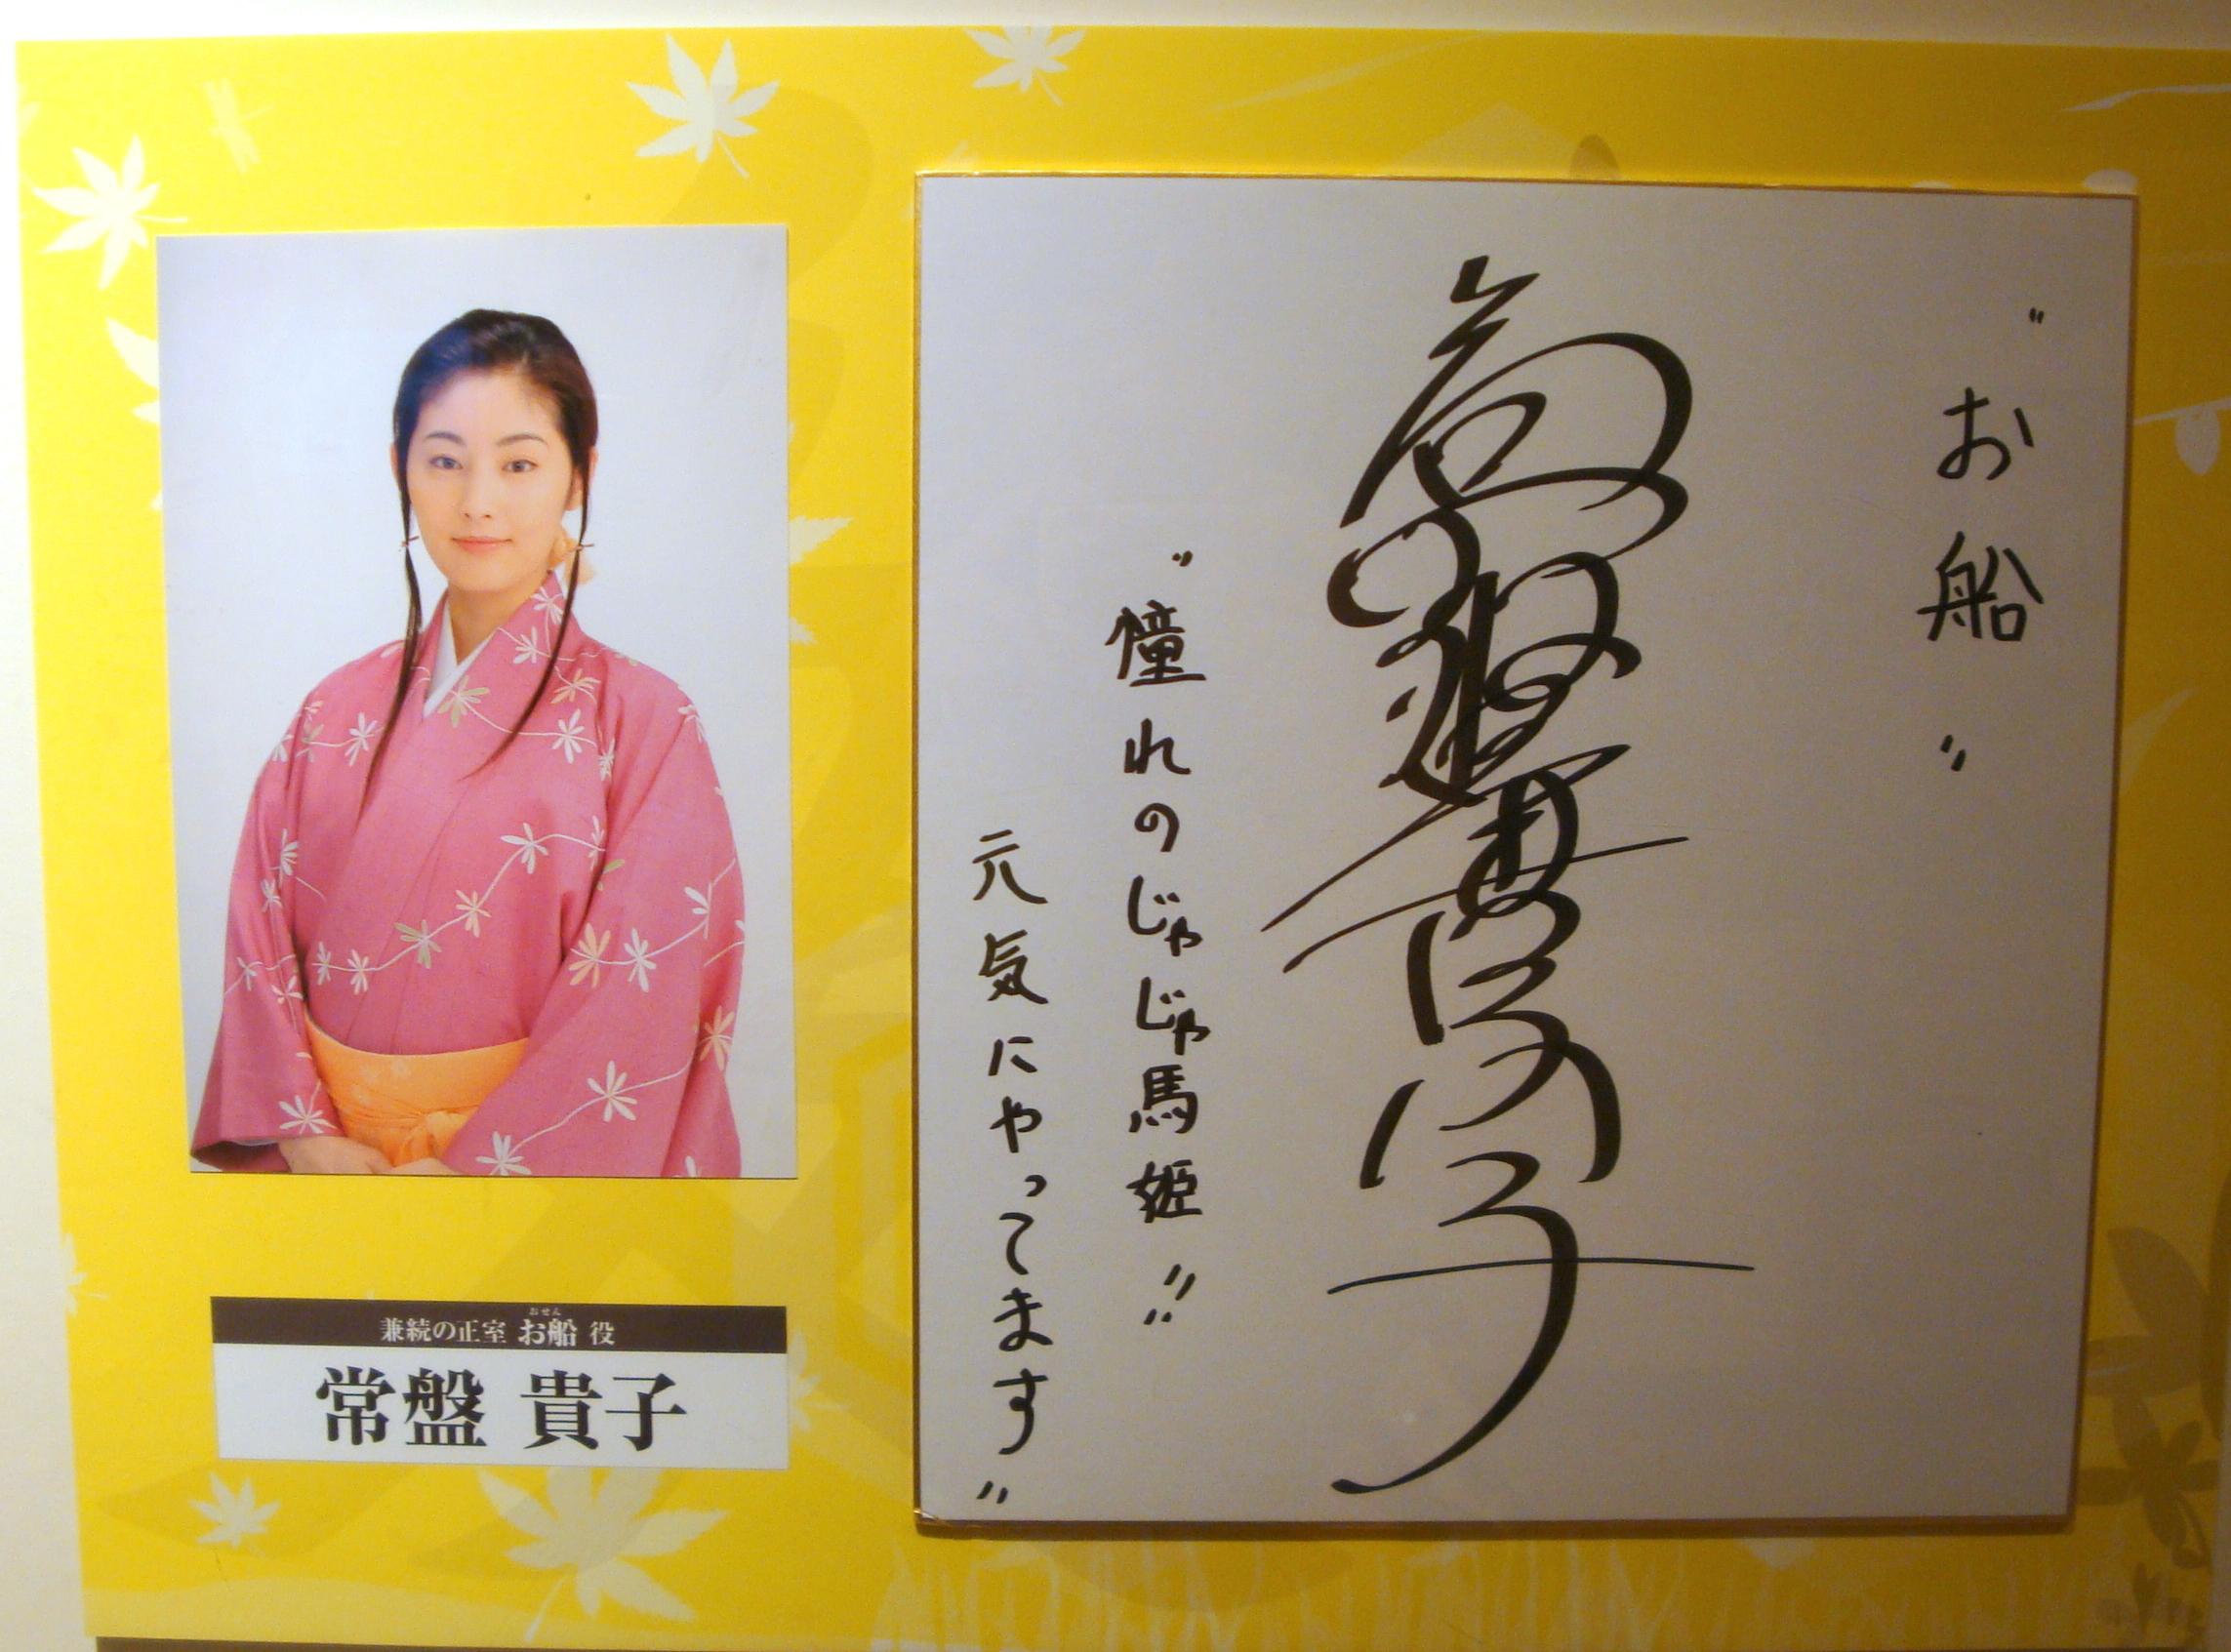 "お船"
常盤貴子
"憧れのじゃじゃ馬姫!!
元気にやってます"
おせん
兼続の正室 お船 役
常盤 貴子